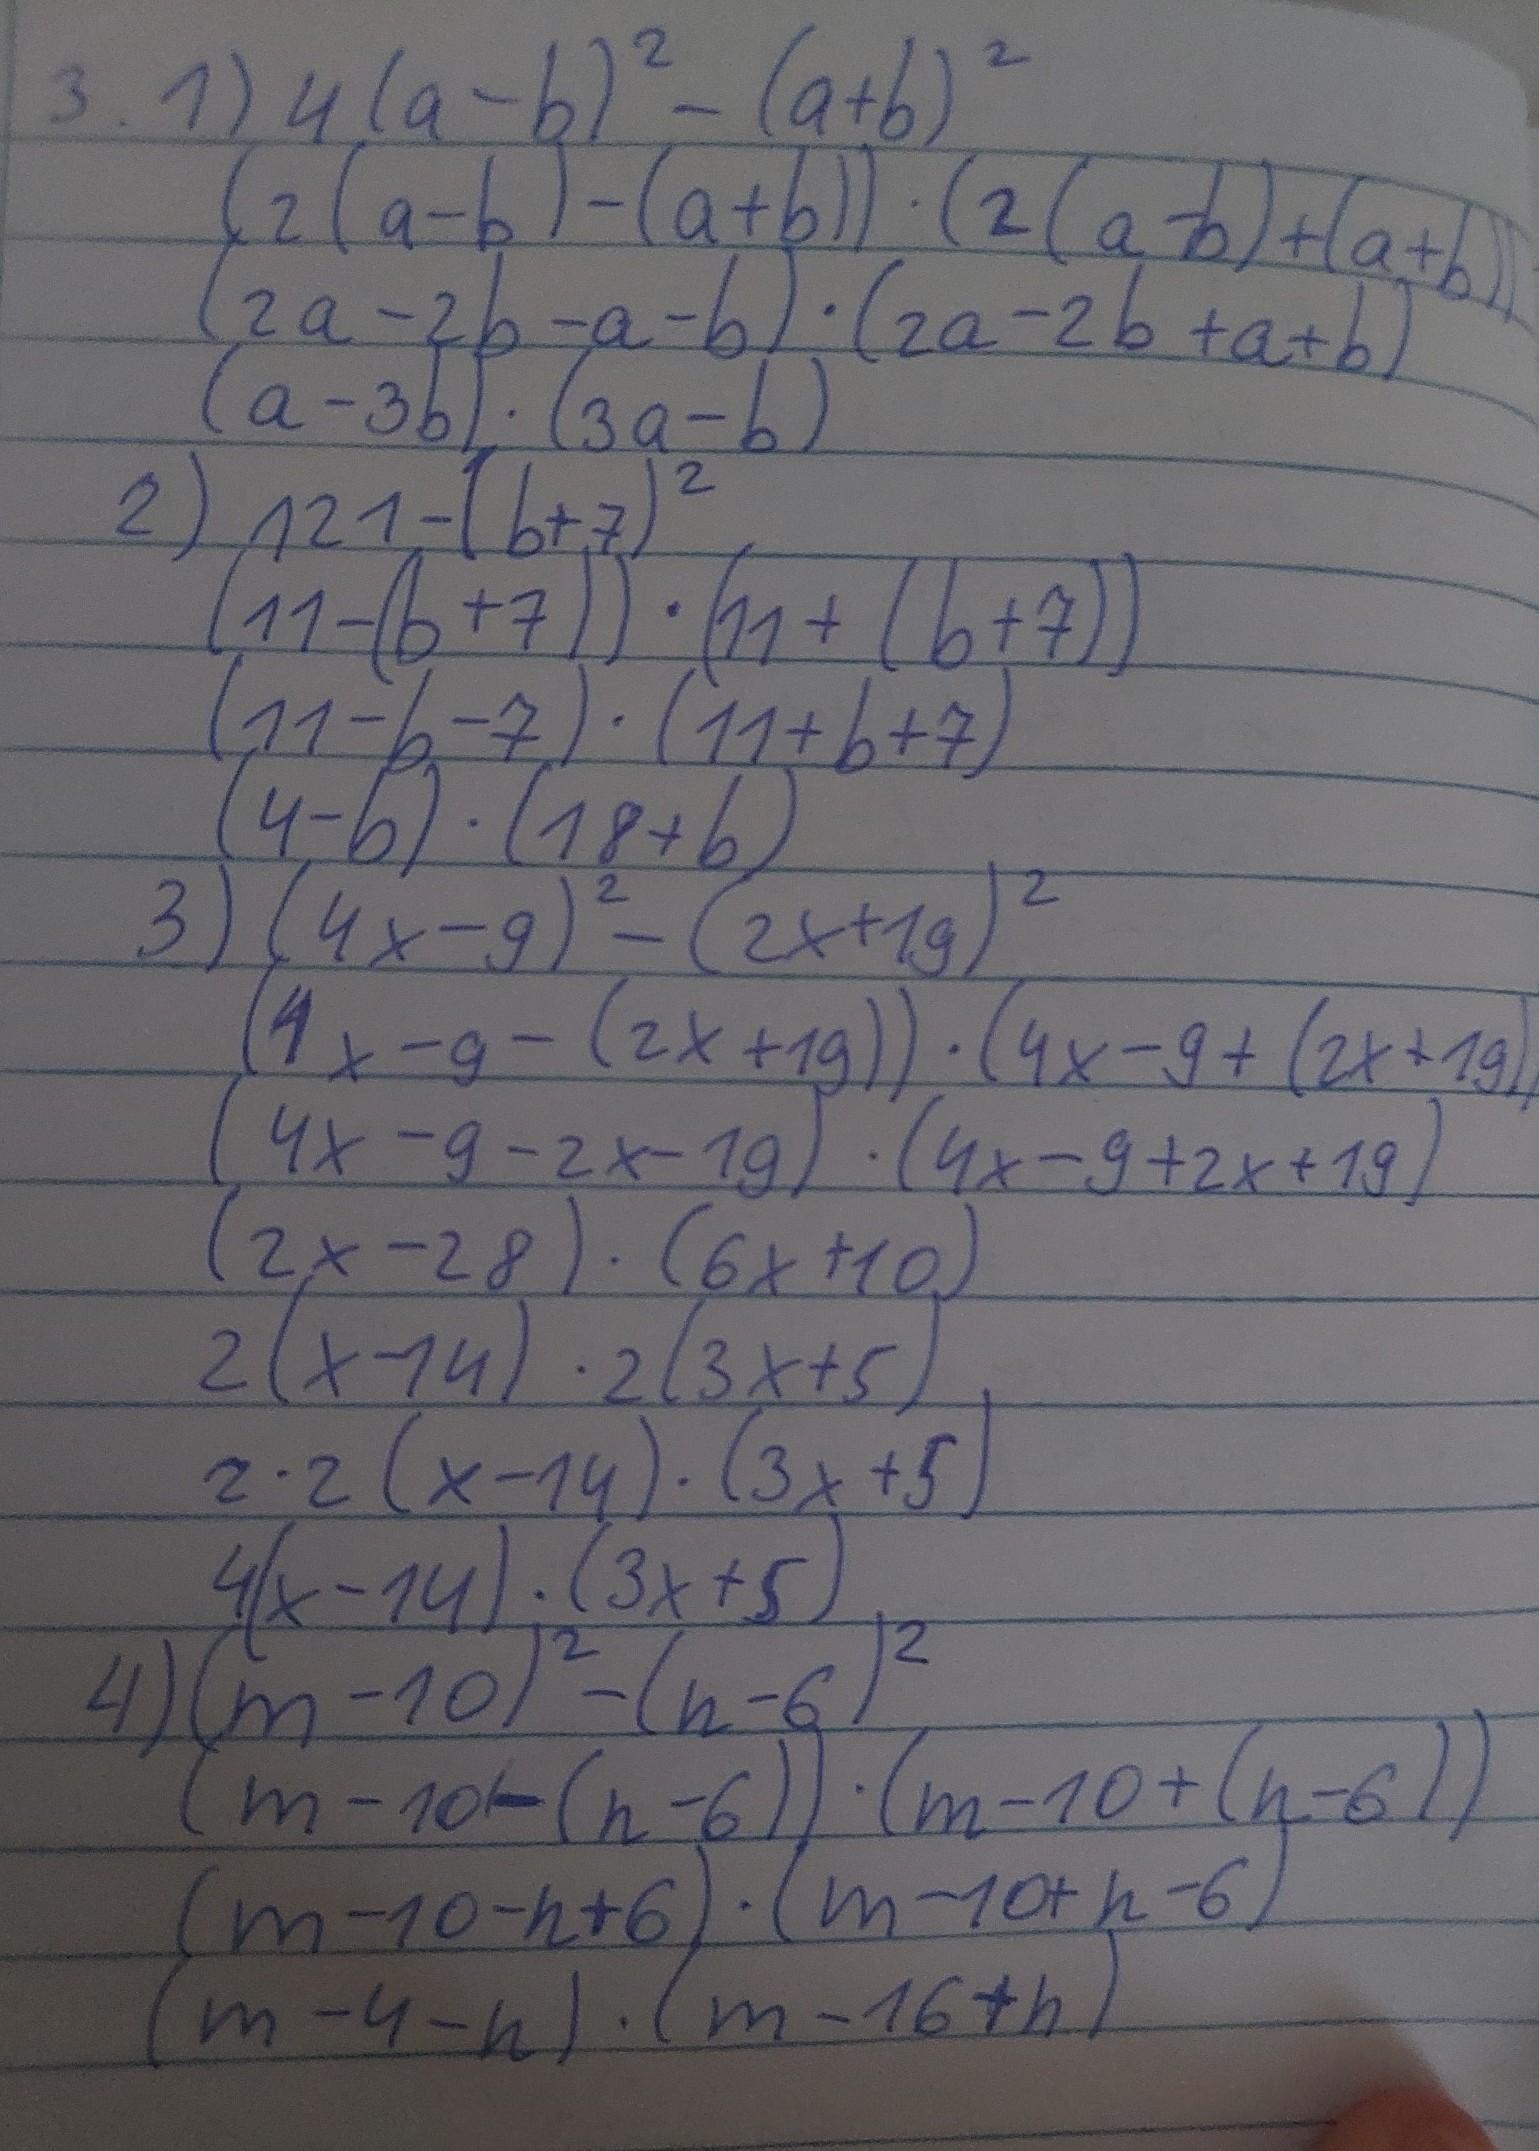 3. 1) 4(a-b)² - (a+b)²
(2(a-b)-(a+b))·(2(a-b)+(a+b))
(2a-2b-a-b)·(2a-2b+a+b)
(a-3b)·(3a-b)
2) 121-(b+7)²
(11-(b+7))·(11+(b+7))
(11-b-7)·(11+b+7)
(4-b)·(18+b)
3) (4x-9)²-(2x+19)²
(4x-9-(2x+19))·(4x-9+(2x+19))
(4x-9-2x-19)·(4x-9+2x+19)
(2x-28)·(6x+10)
2(x-14)·2(3x+5)
2·2(x-14)·(3x+5)
4(x-14)·(3x+5)
4) (m-10)²-(n-6)²
(m-10-(n-6))·(m-10+(n-6))
(m-10-n+6)·(m-10+n-6)
(m-4-n)·(m-16+n)